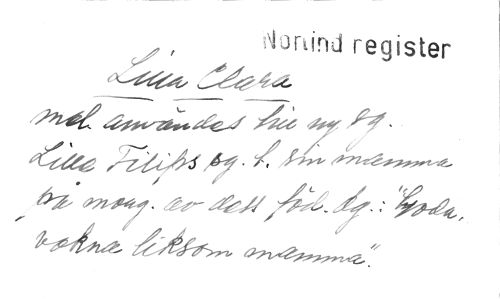 Norlind register
Lilla Clara
mel. användes till ny sg.
Lilla Filips sg. t. sin mamma
på morg. av dess föd. dg.: "Goda,
vakna liksom mamma".